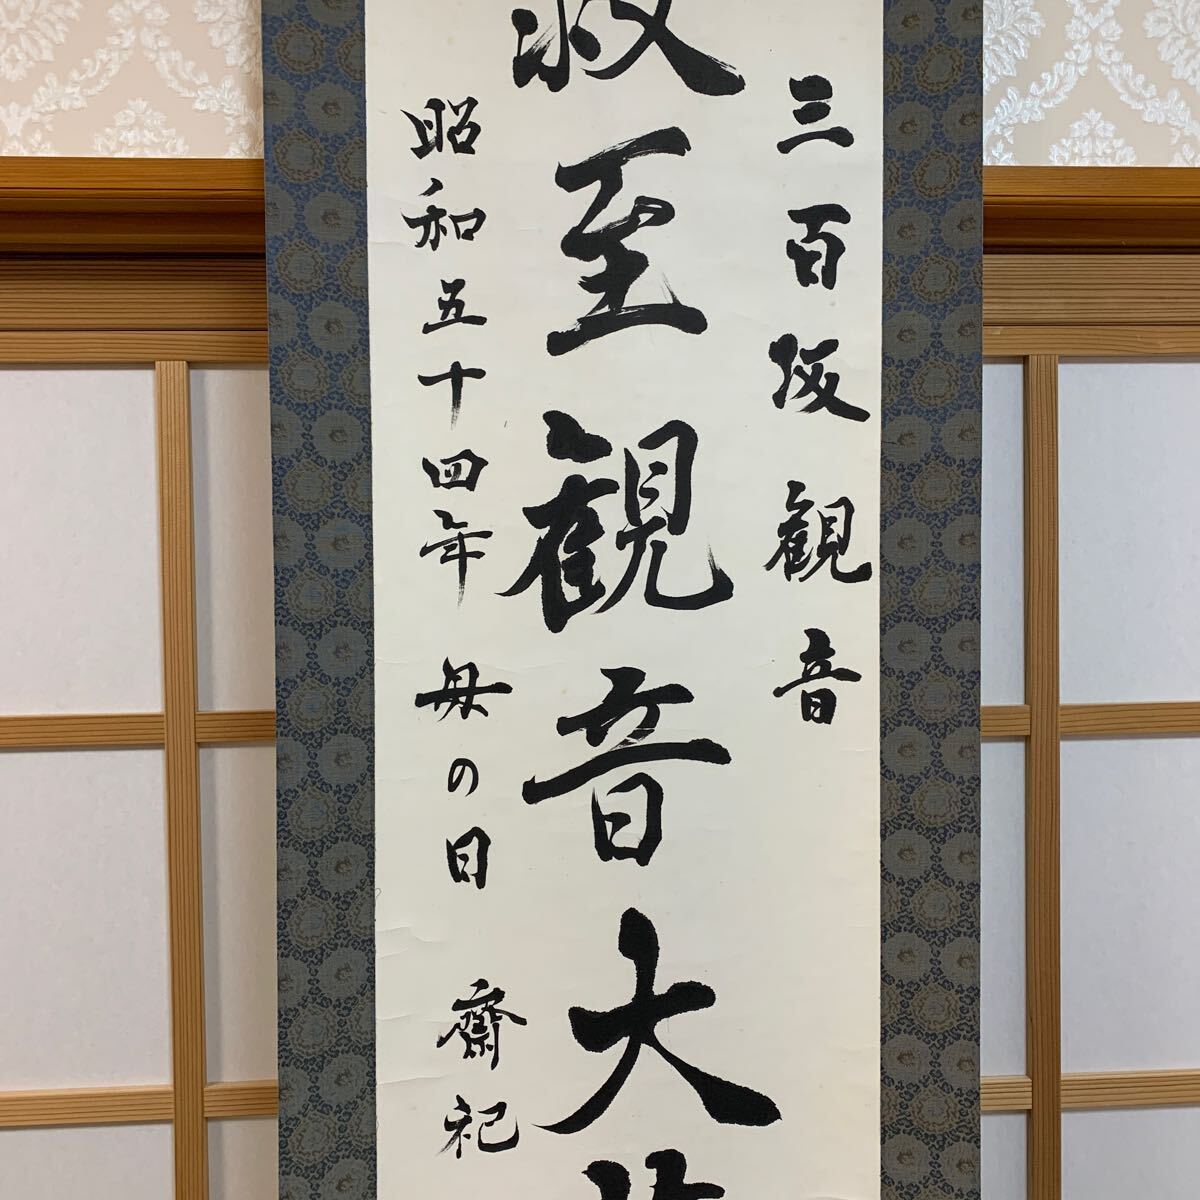 三百坂観音
至観音大
昭和五十四年 母の日 齋祀